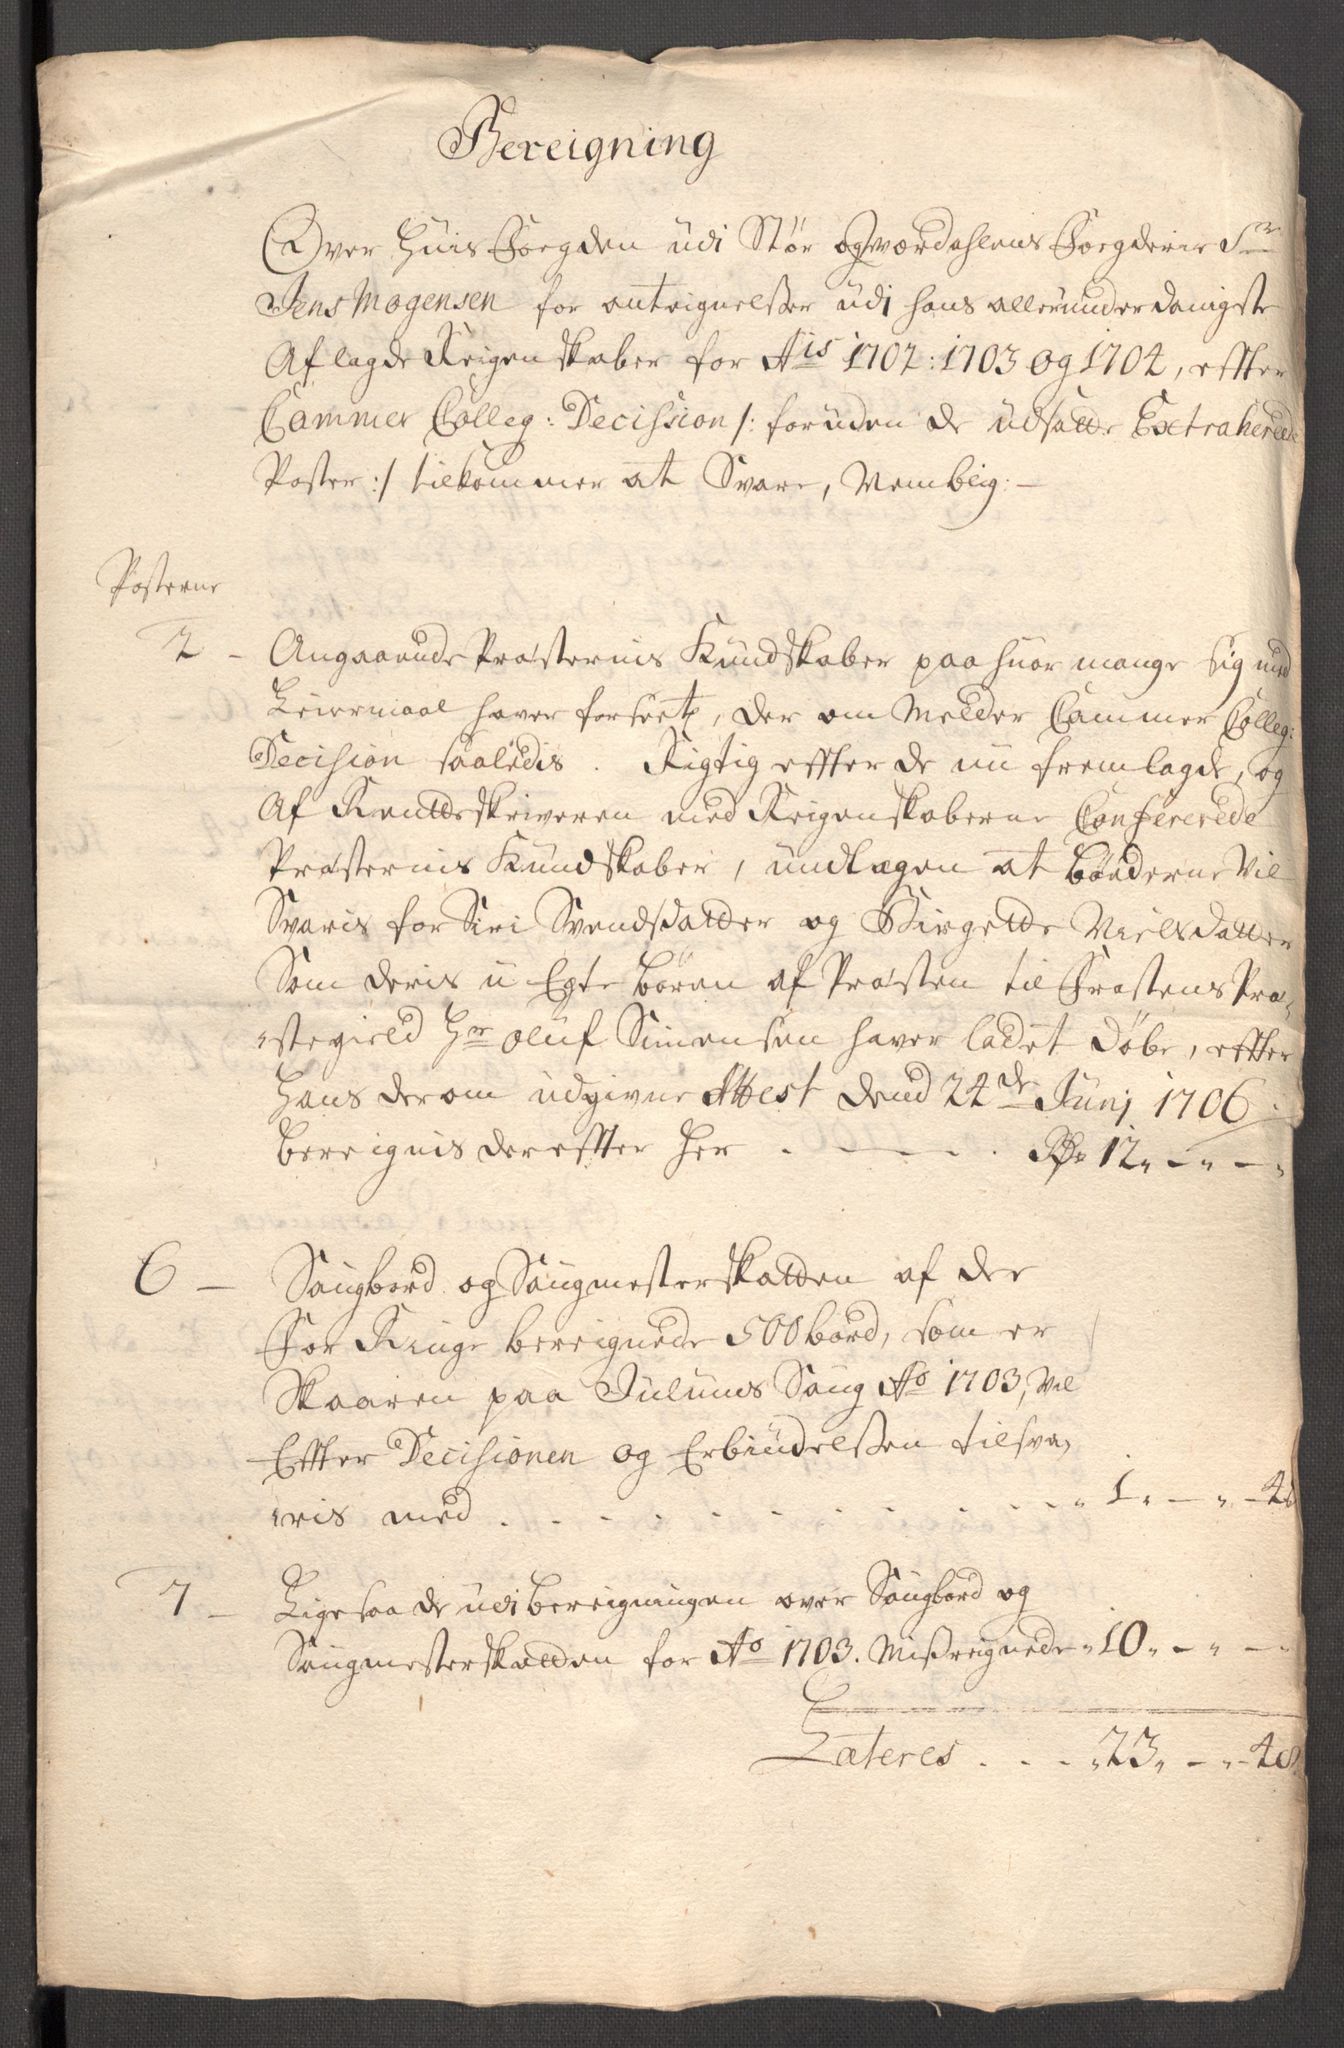 Bereigning
Over huis Foegden udi Stør og Værdahlens Foegderie Sr
Jens Mogensen for anteignelsser udi hans allerunderdanigste
Aflagde Reigenskaber for Ais 1702: 1703 og 1704, effter
Cammer Colleg: Decission /: foruden de udsatte Extraherede
Poster :/ tilkommer at Svare, Nemblig: —
Posterne
2 — Angaaende Præsternis Kundskaber paa huor mange sig med
Leiermaal hafver forseet, der om Melder Cammer Colleg:
Decision saaledis. Rigtig effter de nu fremlagde, og
Af Renteskriveren med Reigenskaberne Confererede
Præsternis Kundskaber, undtagen at bøederne Vil
Svaris for Siri Svendsdatter og Birgette Nielsdatter
Som deris u Egte børen af Præsten til Frostens Præ,
,stegield Hr Oluf Simensen haver ladet Døbe, effter
Hans derom udgivne Attest dend 24de Junj 1706.
bereignis dereffter her . — . — . Rdr 12 „ — „ — „
6 — Saugbord og Saugmesterskatten af der
For Ringe bereignede 500 bord, som er
Skaaren paa Julums Saug Ao 1703, Vil
Effter Decisionen og Erbiudelssen tilsva,
,ris med . . . . . . . „ 1 „ — „ — 48
7 — Ligesaa de udi bereigningen over Saugbord og
Saugmesterskatten for Ao 1703. Missreignede „ 10 „ — „ —
Lateres . . . „ 23 „ — „ — 48